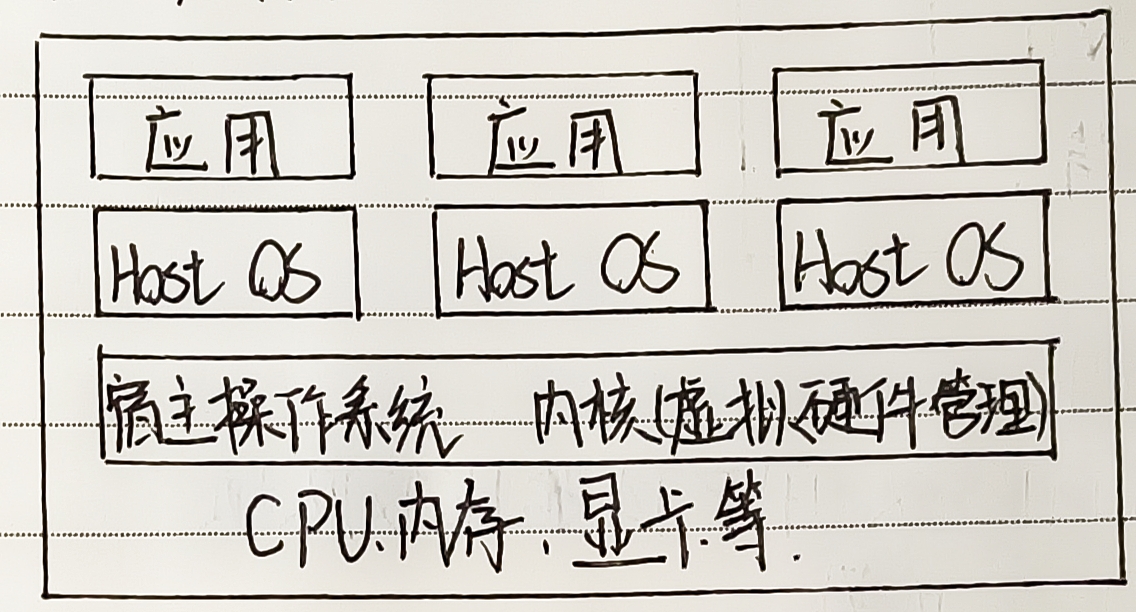 应用 应用 应用
Host OS Host OS Host OS
宿主操作系统 内核(虚拟硬件管理)
CPU、内存、显卡等.